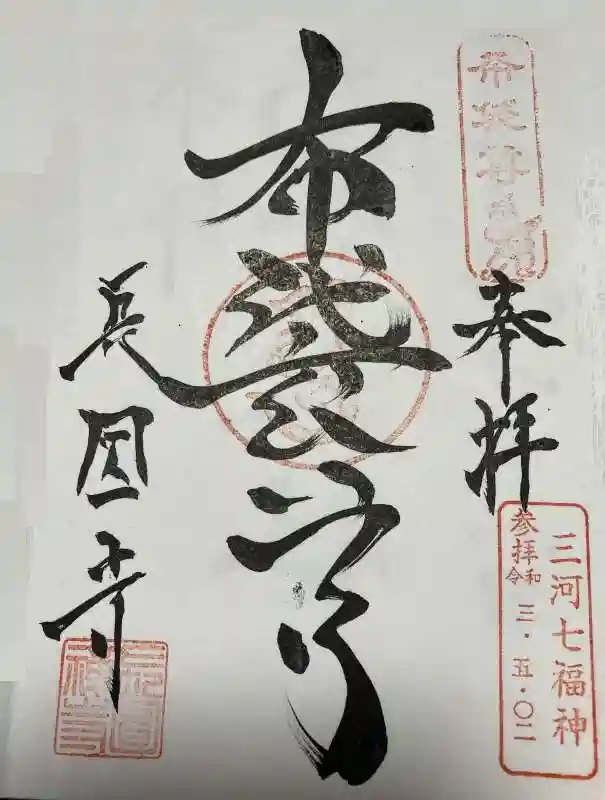 布袋尊
奉拝
三河七福神
参拝
令和
三・五・〇二
布袋尊
長圓寺